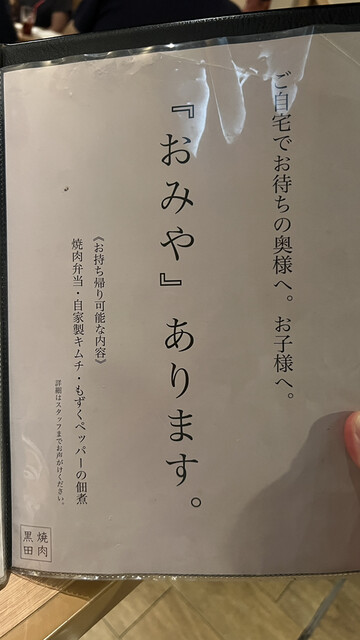 ご自宅でお待ちの奥様へ。お子様へ。
『おみや』あります。
《お持ち帰り可能な内容》
焼肉弁当・自家製キムチ・もずくペッパーの佃煮
詳細はスタッフまでお声がけください。
焼肉
黒田